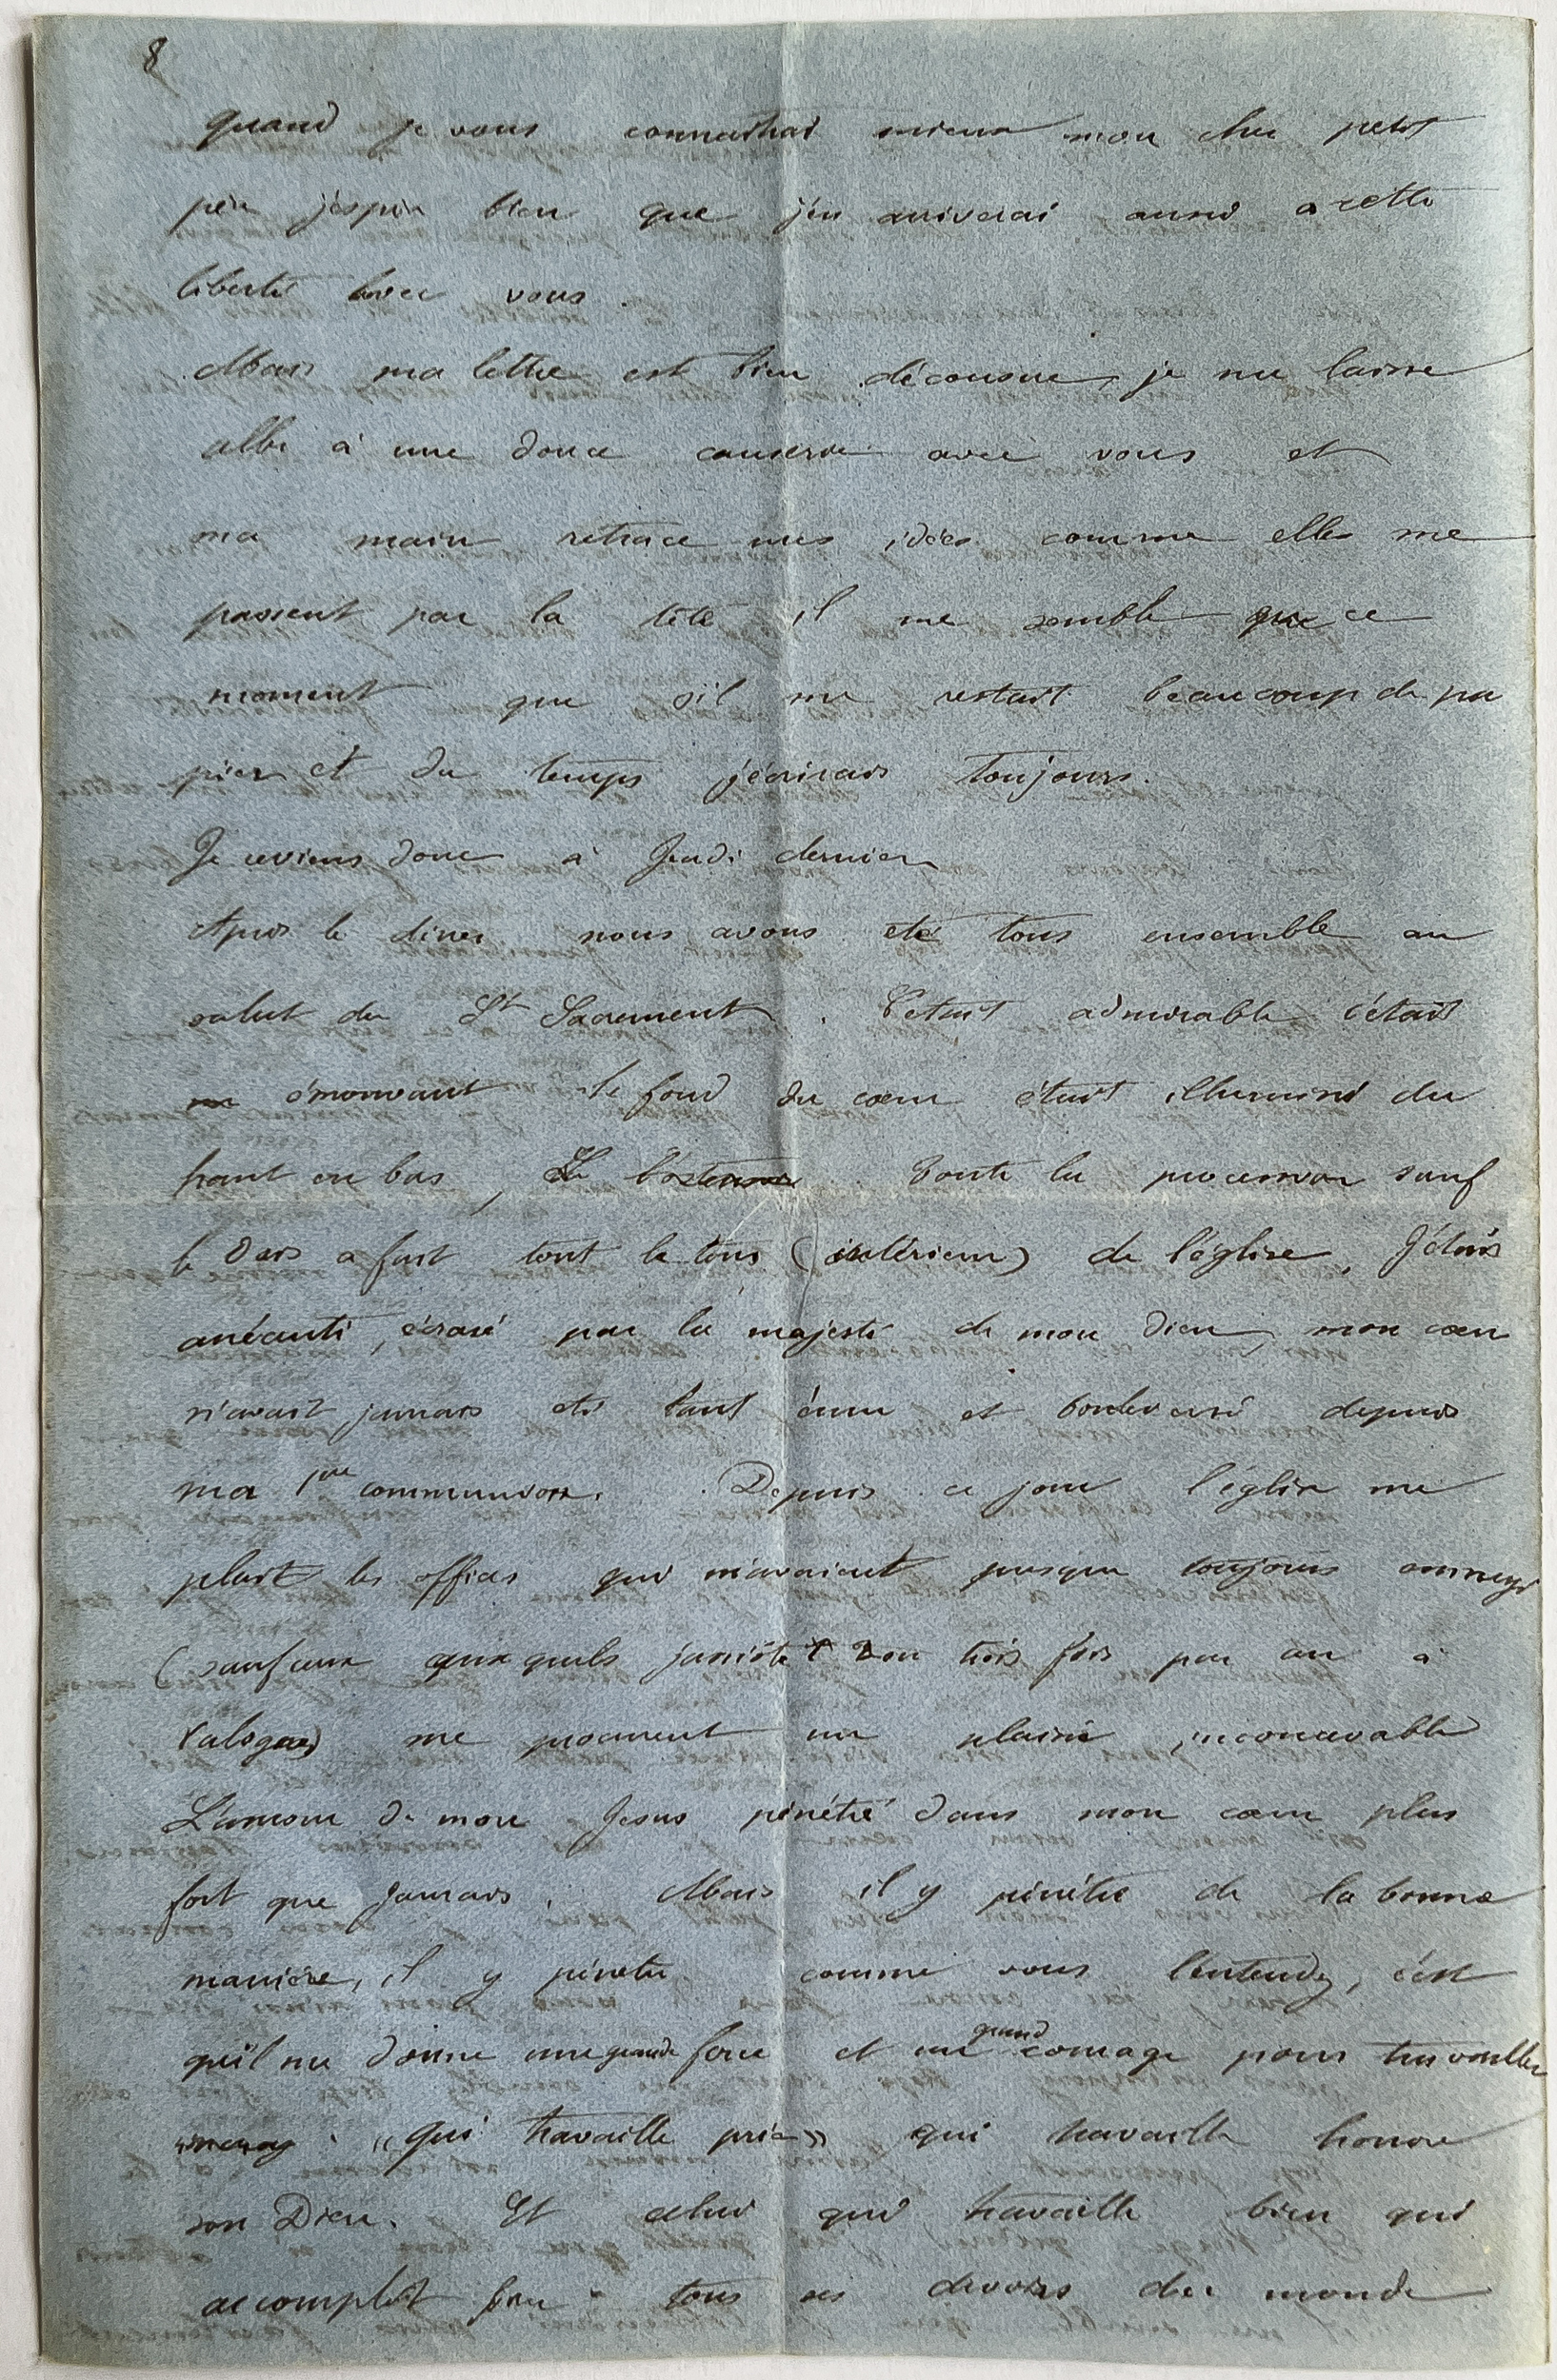 8
quand je vous connaitrai mieux mon cher petit
père j'espère bien que j'en arriverai aussi a cette
liberté avec vous.
Mais ma lettre est bien décousue, je me laisse
aller à une douce causerie avec vous et
ma main retrace mes idées comme elles me
passent par la tête il me semble que ce
moment que s'il me restait beaucoup de pa
pier et du temps j'écrirais toujours.
Je reviens donc à Jeudi dernier
Après le diner nous avons été tous ensemble au
salut du St Sacrement. C'etait admirable c'était
émouvant le fond du cœur était illuminé du
haut en bas, toute la procession sauf
le Dais a fait tout le tour (intérieur) de l'église, J'étais
anéanti, écrasé par la majesté de mon Dieu, mon cœur
n'avait jamais été tant ému et bouleversé depuis
ma 1ere communion. Depuis ce jour l'église me
plait les offices qui m'avaient presque toujours ennuyé
(sauf ceux auxquels j'assiste 2 ou trois fois par an à
Valognes) me procurent un plaisir inconcevable
L'amour de mon Jesus pénétre dans mon cœur plus
fort que jamais. Mais il y pénétre de la bonne
manière, il y pénetre comme vous l'entendez, c'est
qu'il me donne une grande force et un grand courage pour travailler
« qui travaille prie » qui travaille honore
son Dieu. Et celui qui travaille bien qui
accomplit bien tous ses devoirs du monde